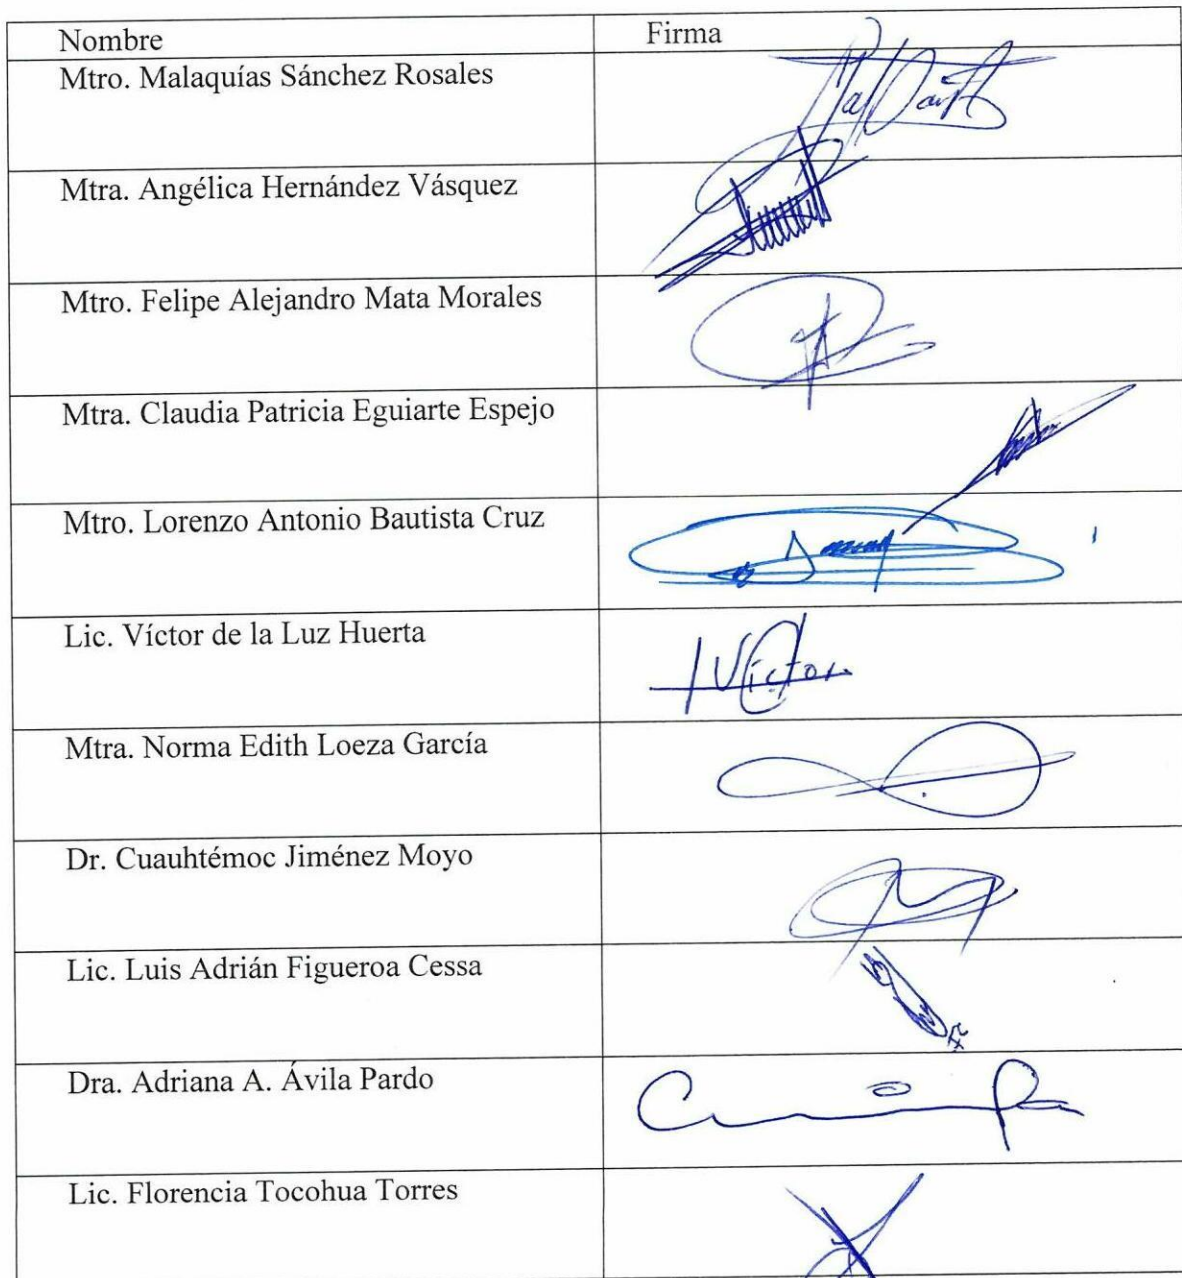 Nombre Firma
Mtro. Malaquías Sánchez Rosales
Mtra. Angélica Hernández Vásquez
Mtro. Felipe Alejandro Mata Morales
Mtra. Claudia Patricia Eguiarte Espejo
Mtro. Lorenzo Antonio Bautista Cruz
Lic. Víctor de la Luz Huerta
Víctor
Mtra. Norma Edith Loeza García
Dr. Cuauhtémoc Jiménez Moyo
Lic. Luis Adrián Figueroa Cessa
Dra. Adriana A. Ávila Pardo
Lic. Florencia Tocohua Torres